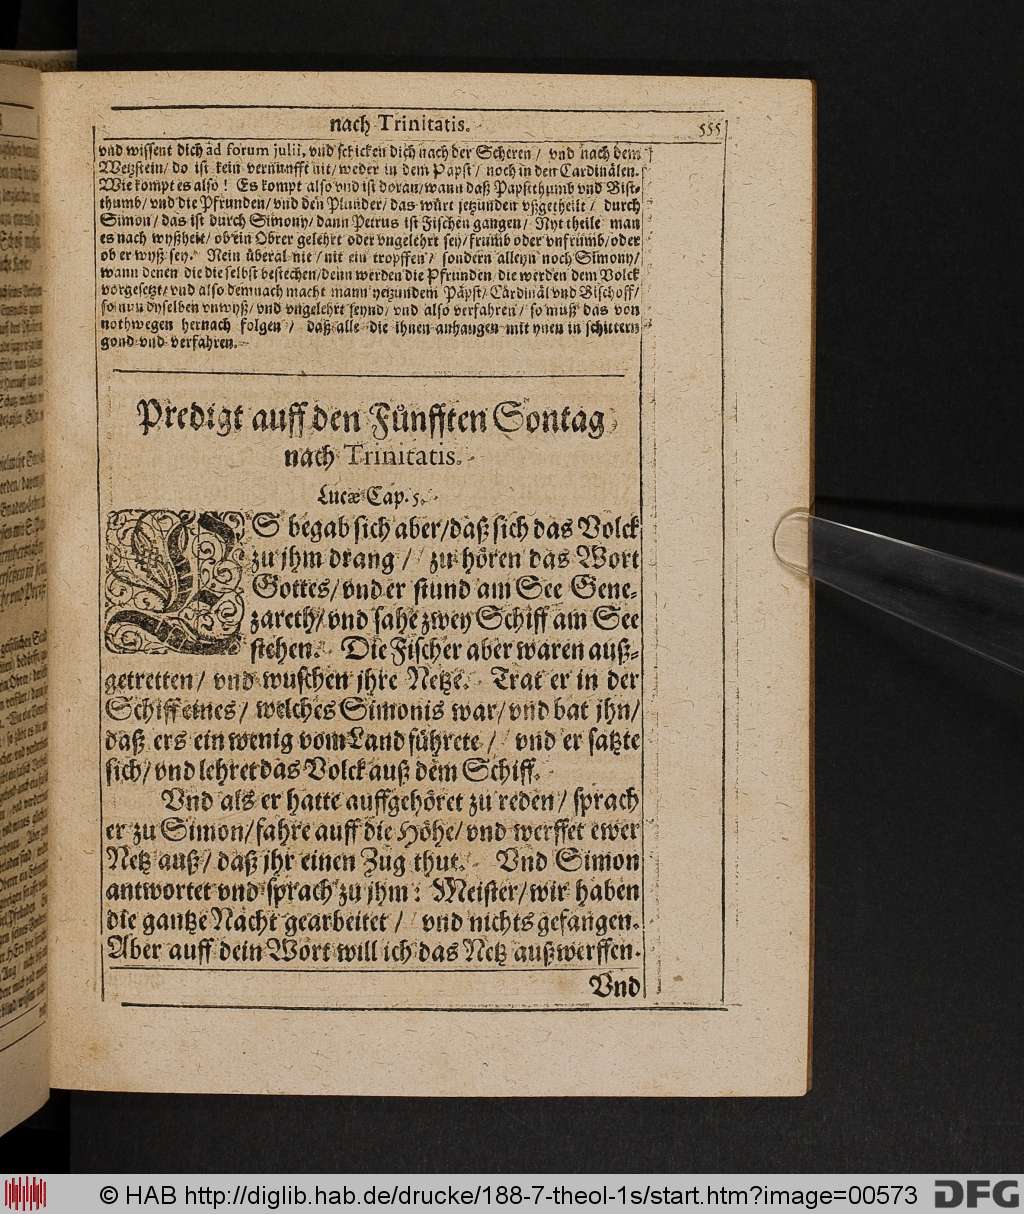 nach Trinitatis.
555
vnd wissent dich ad forum julii, vnd schicken dich nach der Scheren / vnd nach dem
Wetzstein / do ist kein vernunfft nit / weder in dem Papst / noch in den Cardinälen.
Wie kompt es also ! Es kompt also vnd ist doran / wann daß Papstthumb vnd Bist-
thumb / vnd die Pfrunden / vnd den Plunder / das würt jetzunden vßgetheilt / durch
Simon / das ist durch Simony / dann Petrus ist Fischen gangen / Nyt theile man
es nach wyßheit / ob ein Obrer gelehrt oder vngelehrt sey / frumb oder vnfrumb / oder
ob er wyß sey. Nein überal nie / nit ein tropffen / sondern alleyn noch Simony /
wann denen die die selbst bestechen / denn werden die Pfrunden / die werden dem Volck
vorgesetzt / vnd also demnach macht mann yetzundem Päpst / Cardinäl vnd Bischoff /
so nun dyselben vnwyß / vnd vngelehrt seynd / vnd also verfahren / so muß das von
nothwegen hernach folgen / daß alle die ihnen anhangen mit ynen in schittern
gond vnd verfahren.
Predigt auff den Fünfften Sontag
nach Trinitatis.
Lucæ Cap. 5.
ES begab sich aber / daß sich das Volck
zu jhm drang / zu hören das Wort
Gottes / vnd er stund am See Gene-
zareth / vnd sahe zwey Schiff am See
stehen. Die Fischer aber waren auß-
getretten / vnd wuschen jhre Netze. Trat er in der
Schiff eines / welches Simonis war / vnd bat jhn /
daß ers ein wenig vom Land führete / vnd er satzte
sich / vnd lehret das Volck auß dem Schiff.
Vnd als er hatte auffgehöret zu reden / sprach
er zu Simon / fahre auff die Höhe / vnd werffet ewer
Netz auß / daß jhr einen Zug thut. Vnd Simon
antwortet vnd sprach zu jhm : Meister / wir haben
die gantze Nacht gearbeitet / vnd nichts gefangen.
Aber auff dein Wort will ich das Netz außwerffen.
Vnd
© HAB http://diglib.hab.de/drucke/188-7-theol-1s/start.htm?image=00573
DFG